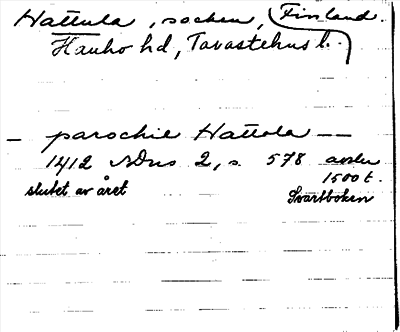 Hattula, socken, Finland.
Hauho hd, Tavastehus l.
— parochie Hattola —
1412 SDns 2, s. 578 avskr
slutet av året 1500 t.
Svartboken